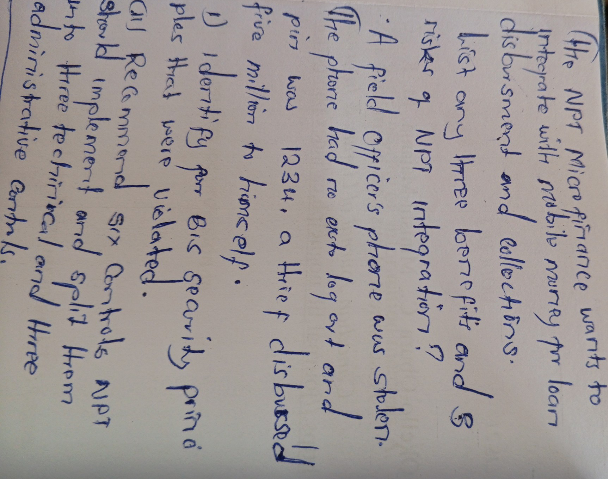 (The NPT Microfinance wants to
integrate with mobile money for loan
disbursment and collections.
List any three benefits and 3
risks of NPT integration?
. A field Officer's phone was stolen.
(The phone had no auto log out and
pin was 1234. a thief disbursed
five million to himself.
1) Identify four BIS security princi
ples that were violated.
(ii) Recommend six Controls NPT
should implement and split them
into three technical and three
administrative controls.